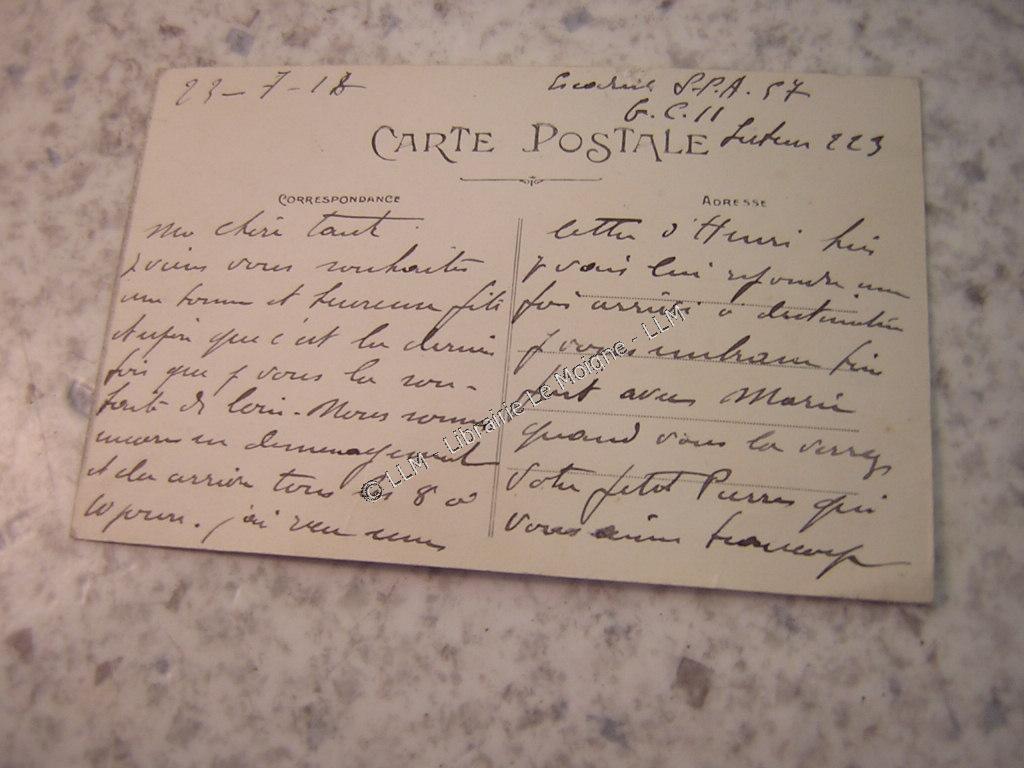 23-7-18
Escadrille S.P.A. 57
G.C. 11
Secteur 223
CARTE POSTALE
CORRESPONDANCE
ma chère tante
je viens vous souhaiter
une bonne et heureuse fête
que c'est la dernière
fois que je vous la sou-
haite de loin. Nous sommes
encore en demenagement
tous les 8 ou
10 jours. j'ai reçu une
ADRESSE
lettre d'Henri hier
je vais lui repondre une
fois arrivé à destination
je vous embrasse bien
avec Marie
quand vous la verrez
Votre petit Pierre qui
vous aime beaucoup
© LLM - Librairie Le Moigne - LLM